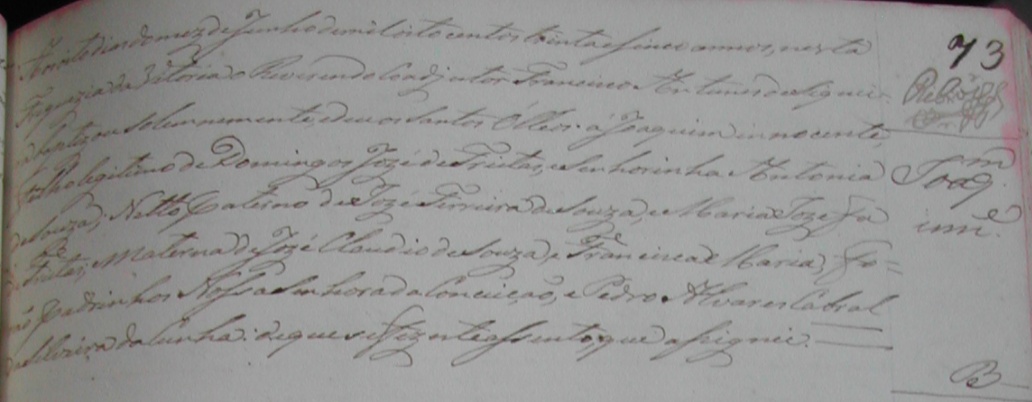 dias do mez de Junho de mil oito centos trinta e sinco annos, nesta
Freguezia da Vitoria o Reverendo Coadjutor Francisco Antunes de Siquei=
ra baptizou solemnemente, e deu os Santos Olleos á Joaquim innocente,
filho legitimo de Domingos Jozé de Freitas, e Senhorinha Antonia
de Souza; Netto Paterno de Jozé Ferreira de Souza, e Maria Jozefa
de Freitas, e Materna de Jozé Claudio de Souza, e Francisca Maria; Fo=
rão Padrinhos Nossa Senhora da Conceição, e Pedro Alvares Cabral
da Silveira da Cunha: de que se fez este assento, que assignei.
73
Joaq.m
inn.e
B